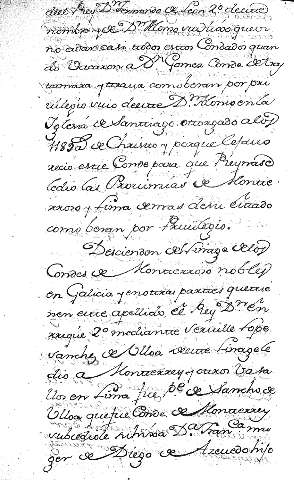 del Rey Dn. Fernando de Leon 2º de este
nombre, y de Dn. Alonso su hijo que
no estar casi todos estos Condados quan
do Dn. Gomez Conde de
tamara, y trava como veran por pri
vilegio suio de este Dn. Alonso en la
Iglesia de Santiago otorgado a los
1188 de Christo y porque
recio este Conde para que Rey
le dio las Provincias de Monte
rroso y Lima demas de su estado
como veran por Privilegio.
Descienden de linage de los
Condes de Monterroso nobles
en Galicia y en otras partes que tie
nen este apellido. el Rey Dn. En
rrique 2º mediante ser Lope
Sanchez de Ulloa de este linage le
dio a Monterrey y otros Vasa
llos en Lima fue Pe. de Sancho de
Ulloa que fue Conde de Monterrey
subcediole su hija Da. Franca. mu
ger de Diego de Azevedo hijo